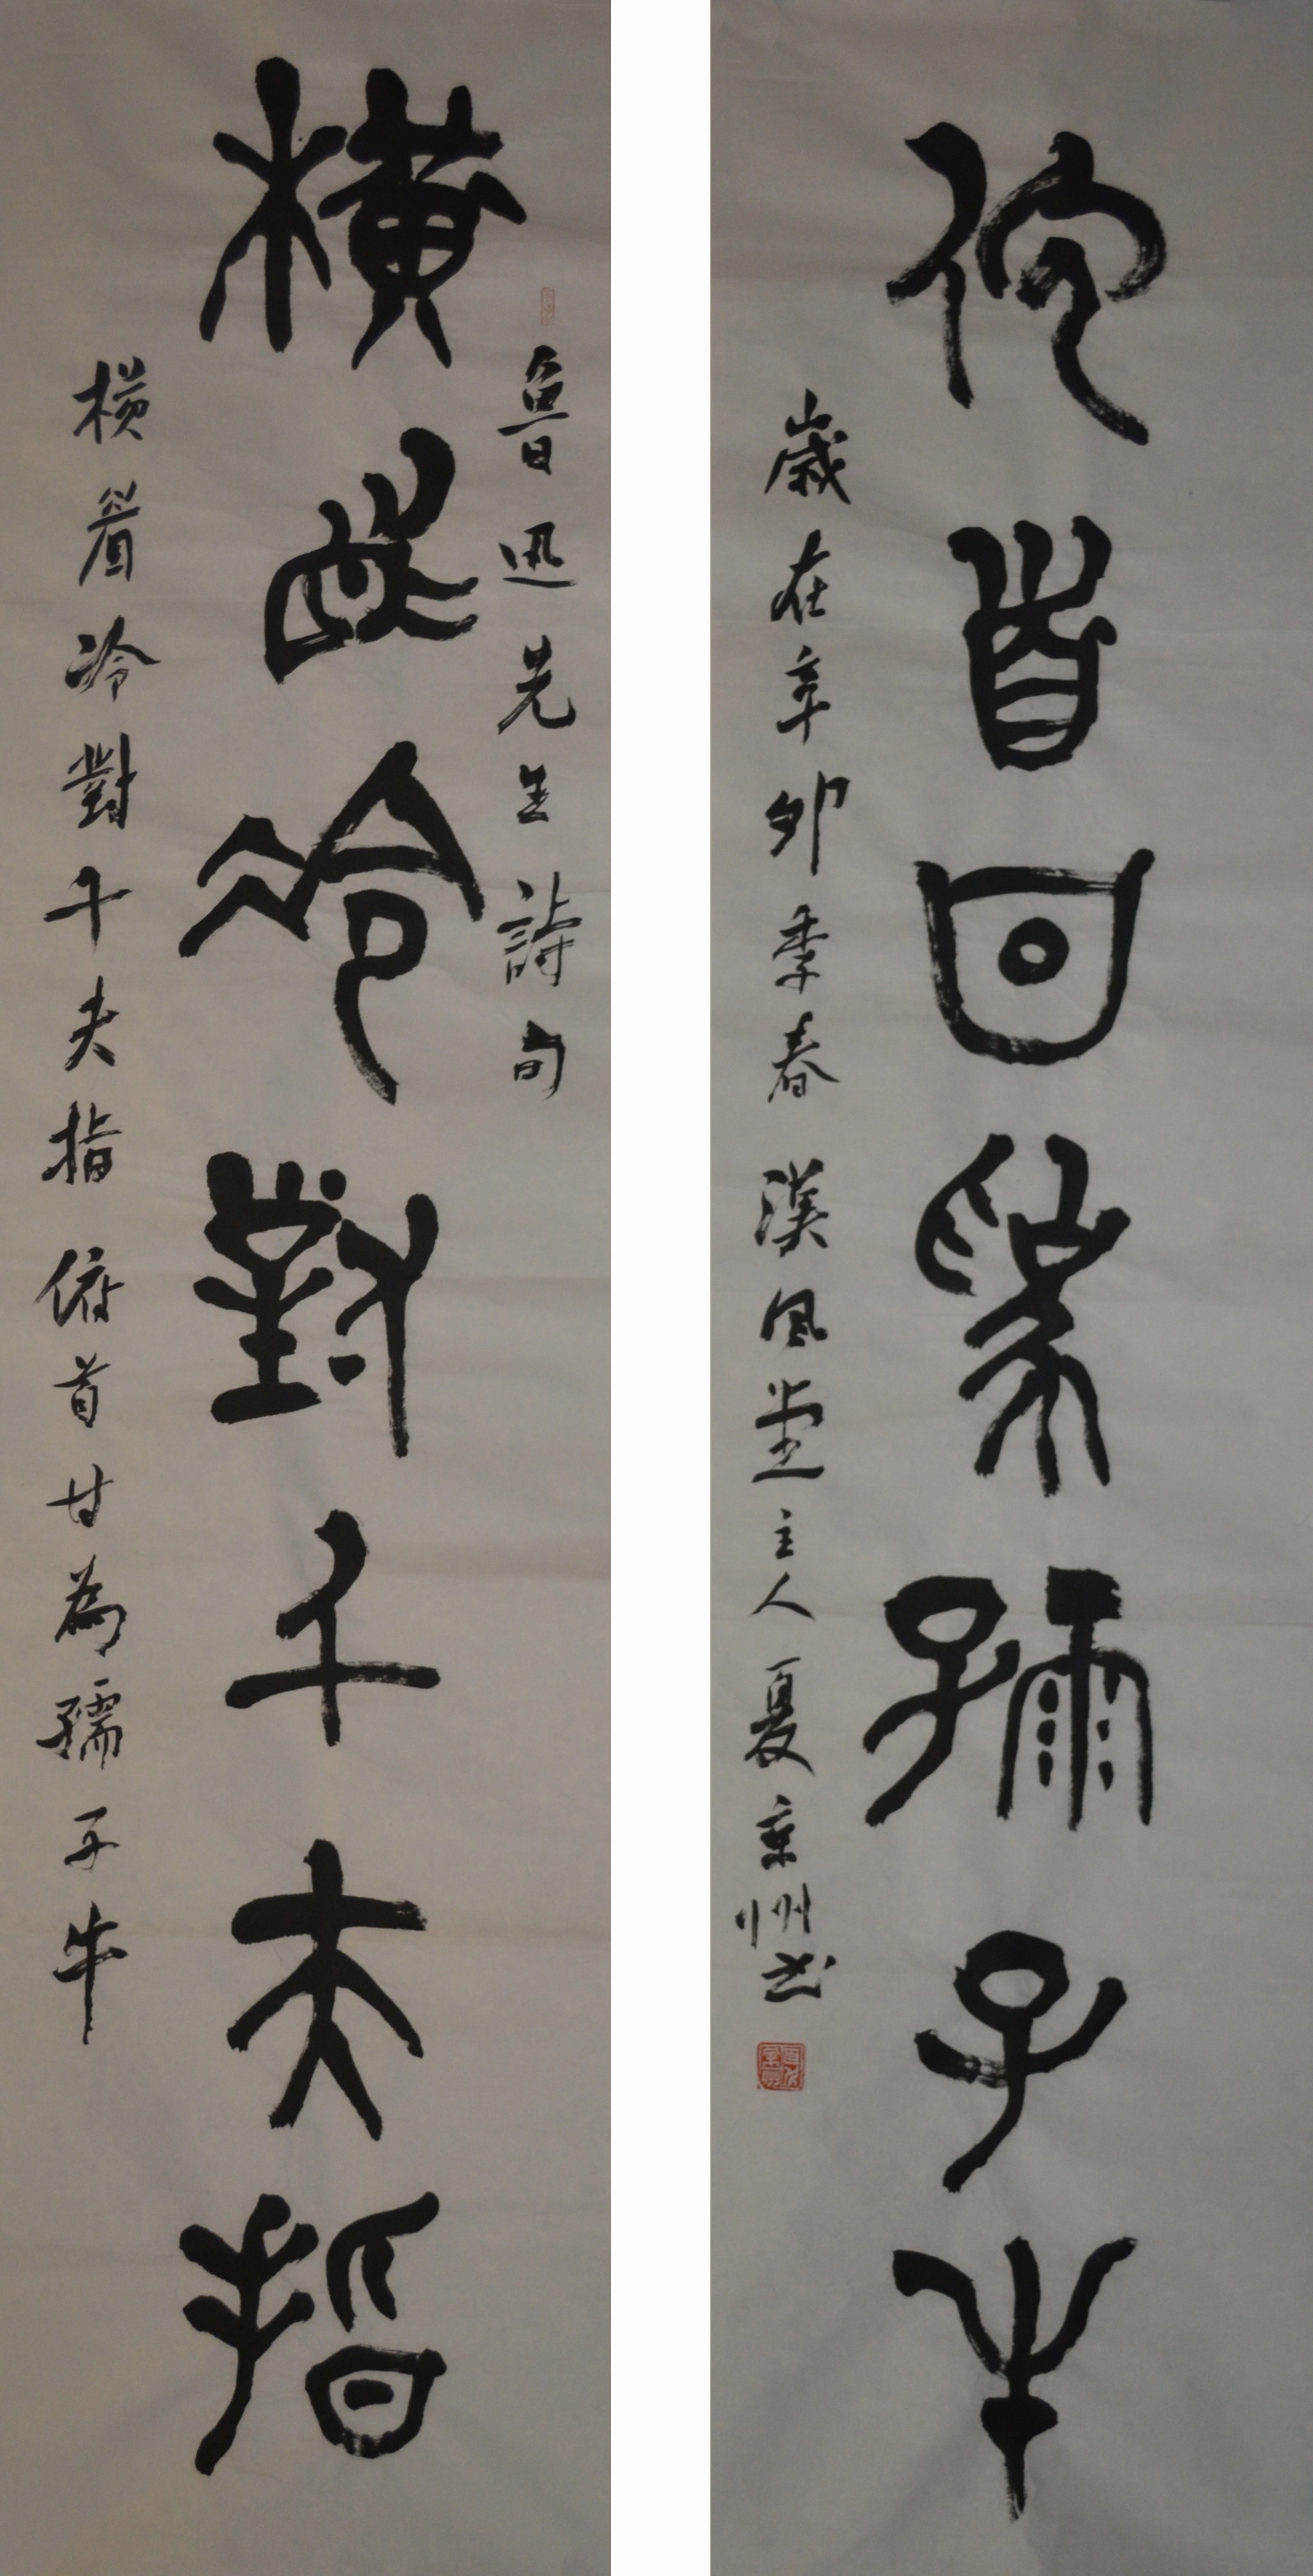 魯迅先生詩句
橫眉冷對千夫指
橫眉冷對千夫指俯首甘為孺子牛
俯首甘為孺子牛
歲在辛卯季春漢風堂主人夏京州书